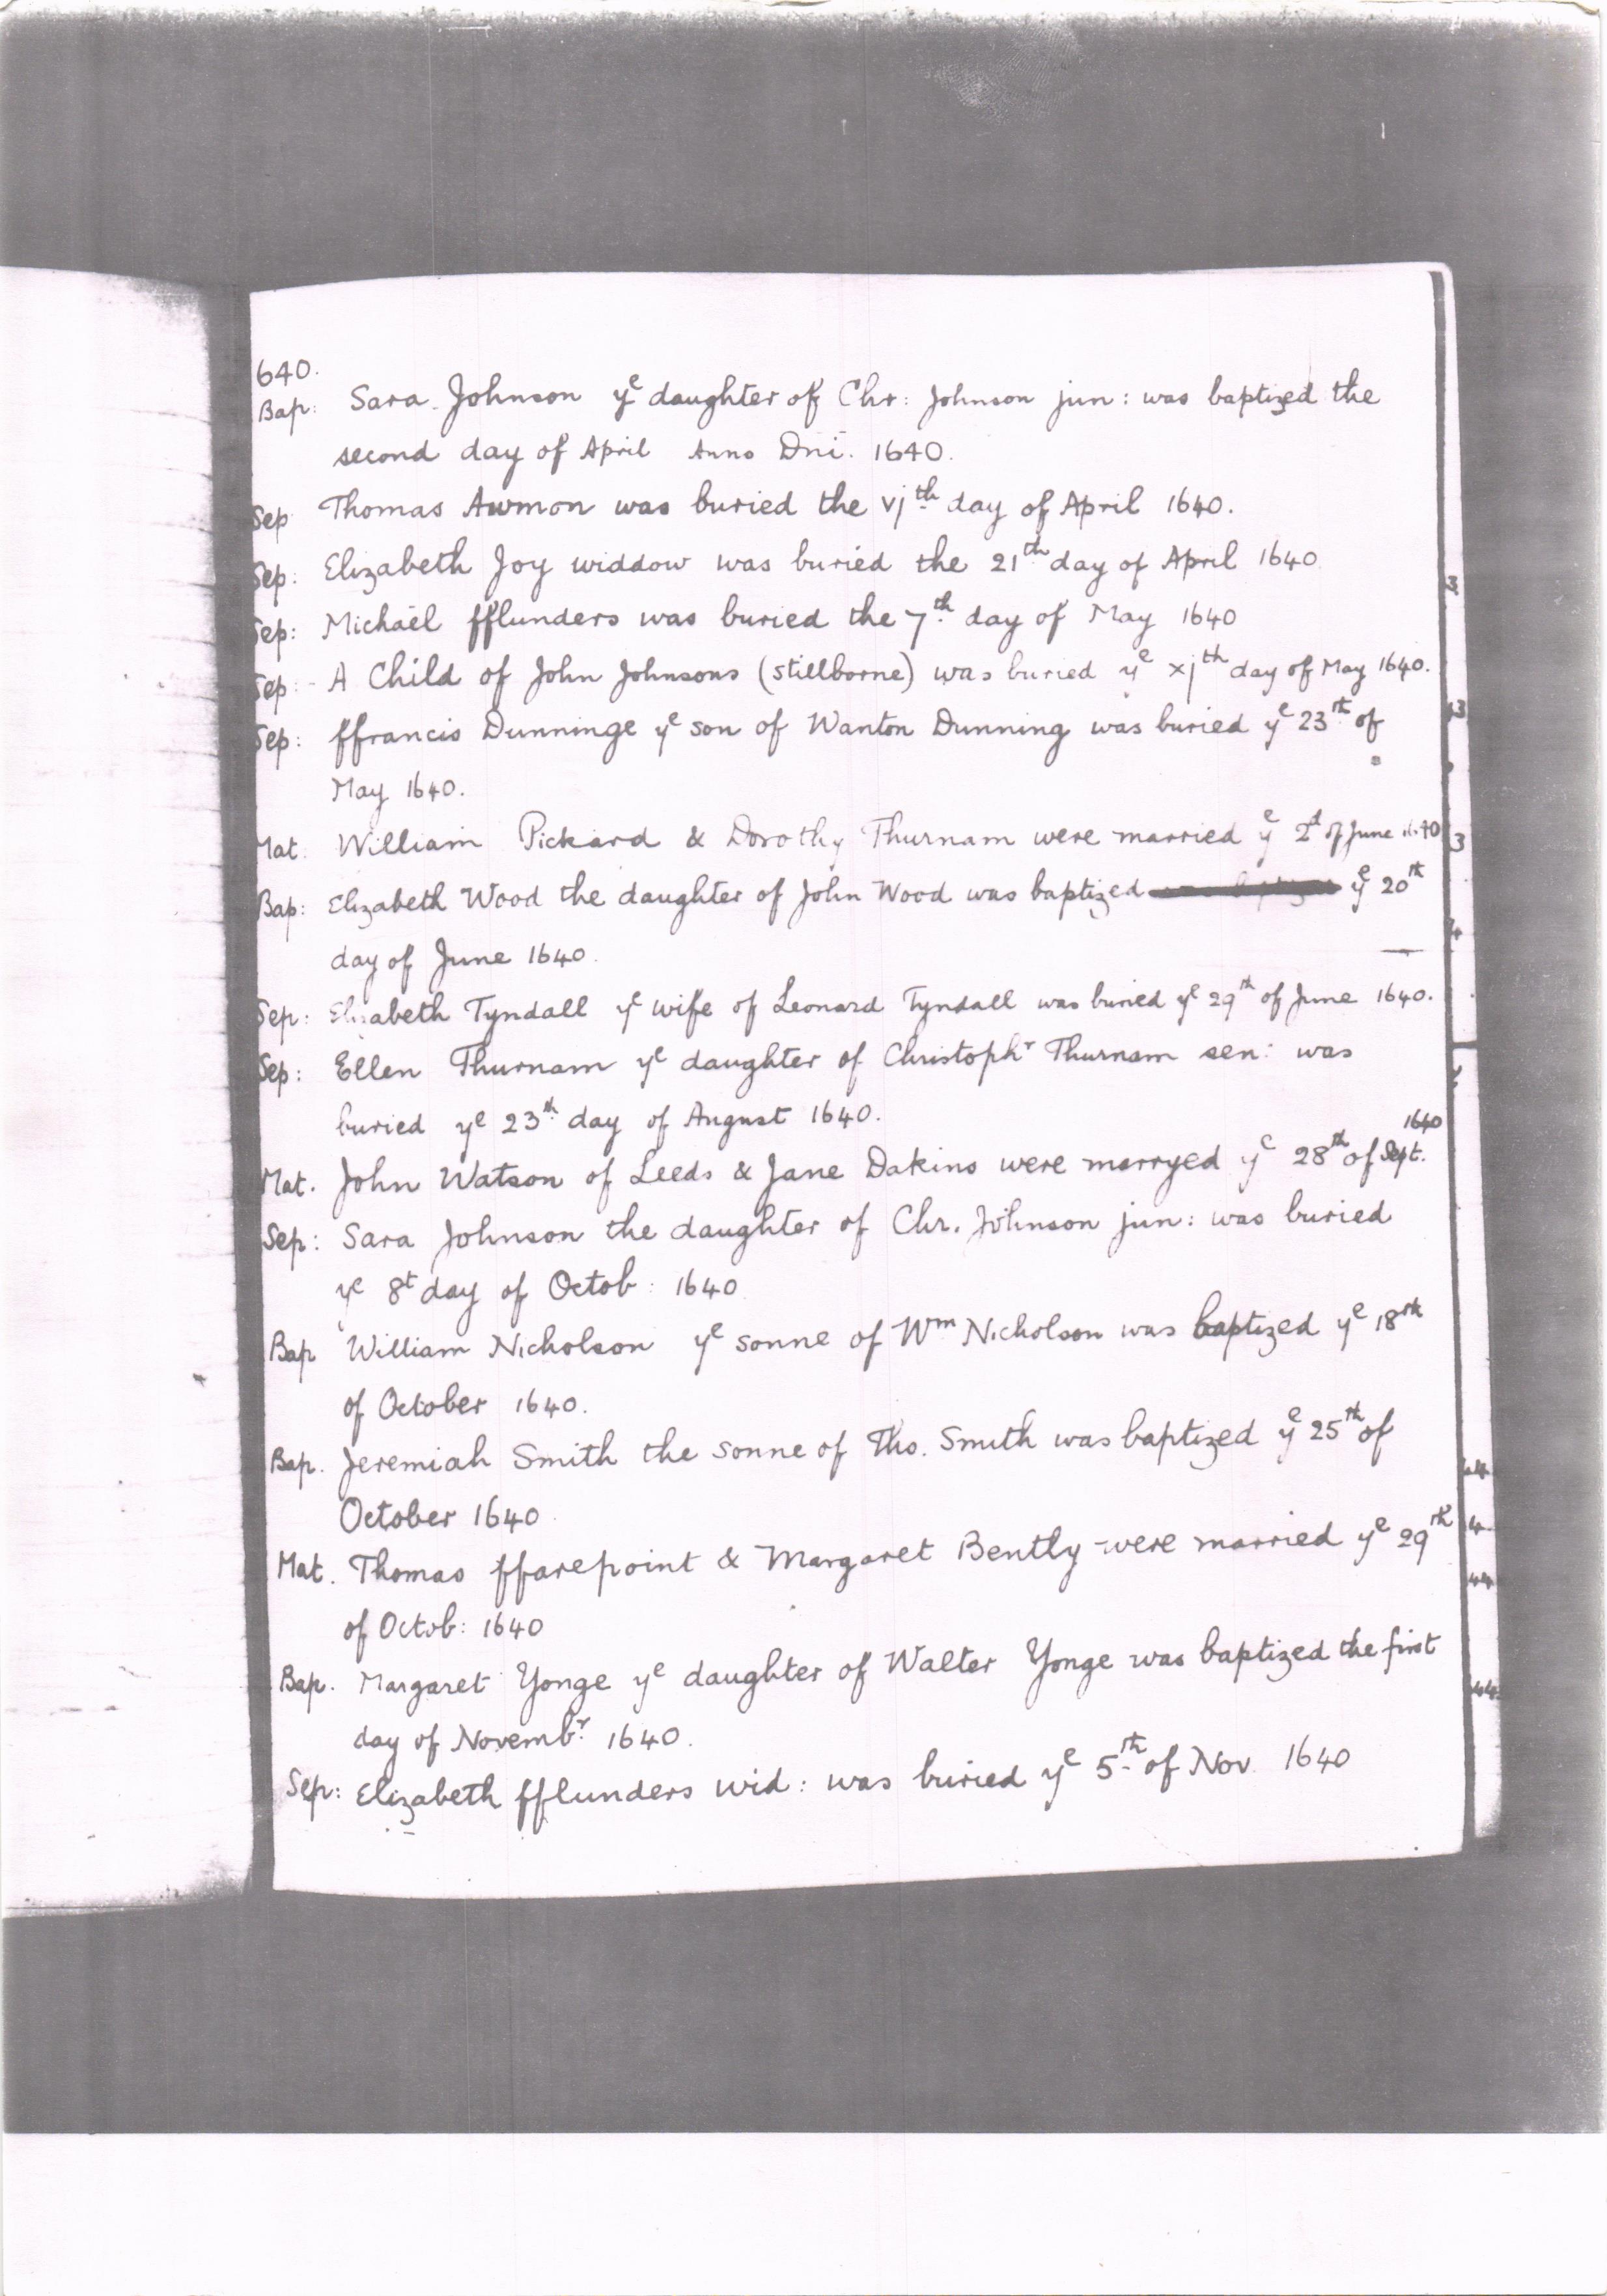 640.
Bap: Sara Johnson yᵉ daughter of Chr: Johnson jun: was baptized the
second day of April Anno Dni. 1640.
Sep Thomas Awmon was buried the vjᵗʰ day of April 1640.
Sep: Elizabeth Joy widdow was buried the 21ᵗʰ day of April 1640
Sep: Michaël fflunders was buried the 7ᵗʰ day of May 1640
Sep: A Child of John Johnsons (stillborne) was buried yᵉ xjᵗʰ day of May 1640.
Sep: ffrancis Dunninge yᵉ son of Wanton Dunning was buried yᵉ 23ᵗʰ of
May 1640.
Mat: William Pickard & Dorothy Thurnam were married yᵉ 2ᵈ of June 1640
Bap: Elizabeth Wood the daughter of John Wood was baptized yᵉ 20ᵗʰ
day of June 1640.
Sep: Elizabeth Tyndall yᵉ wife of Leonard Tyndall was buried yᵉ 29ᵗʰ of June 1640.
Sep: Ellen Thurnam yᵉ daughter of Christophʳ Thurnam sen: was
buried yᵉ 23ᵗʰ day of August 1640.
Mat. John Watson of Leeds & Jane Dakins were marryed yᵉ 28ᵗʰ of Sept. 1640
Sep: Sara Johnson the daughter of Chr. Johnson jun: was buried
yᵉ 8ᵗ day of Octob: 1640
Bap William Nicholson yᵉ sonne of Wᵐ Nicholson was baptized yᵉ 18ᵗʰ
of October 1640.
Bap. Jeremiah Smith the sonne of Tho. Smith was baptized yᵉ 25ᵗʰ of
October 1640
Mat. Thomas ffarepoint & Margaret Bently were married yᵉ 29ᵗʰ
of Octob: 1640
Bap. Margaret Yonge yᵉ daughter of Walter Yonge was baptized the first
day of Novembʳ 1640.
Sep: Elizabeth fflunders wid: was buried yᵉ 5ᵗʰ of Nov 1640